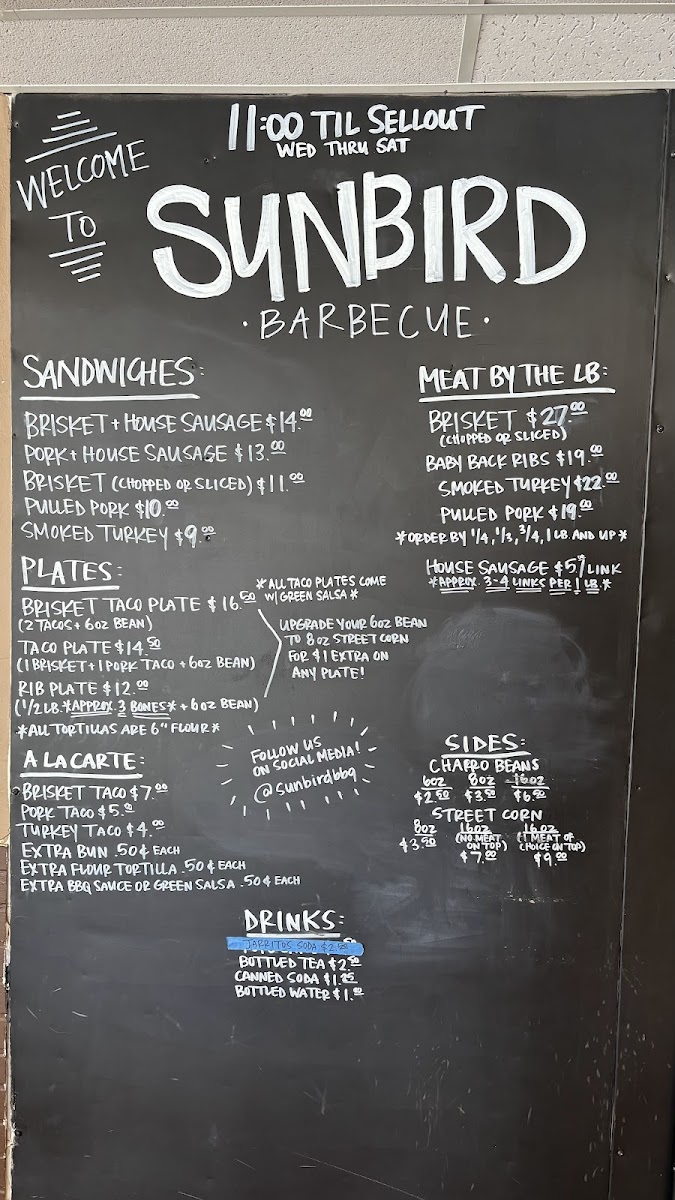 WELCOME
TO
11:00 TIL SELLOUT
WED THRU SAT
SUNBIRD
·BARBECUE·
SANDWICHES:
BRISKET + HOUSE SAUSAGE $14.00
PORK + HOUSE SAUSAGE $13.00
BRISKET (CHOPPED OR SLICED) $11.00
PULLED PORK $10.00
SMOKED TURKEY $9.00
PLATES:
BRISKET TACO PLATE $16.50
(2 TACOS + 6OZ BEAN)
TACO PLATE $14.50
(1 BRISKET + 1 PORK TACO + 6OZ BEAN)
RIB PLATE $12.00
(1/2 LB. *APPROX. 3 BONES* + 6OZ BEAN)
*ALL TORTILLAS ARE 6" FLOUR*
*ALL TACO PLATES COME
W/ GREEN SALSA*
UPGRADE YOUR 6OZ BEAN
TO 8OZ STREET CORN
FOR $1 EXTRA ON
ANY PLATE!
A LA CARTE:
BRISKET TACO $7.00
PORK TACO $5.00
TURKEY TACO $4.00
EXTRA BUN .50¢ EACH
EXTRA FLOUR TORTILLA .50¢ EACH
EXTRA BBQ SAUCE OR GREEN SALSA .50¢ EACH
FOLLOW US
ON SOCIAL MEDIA!
@sunbirdbbq
MEAT BY THE LB:
BRISKET $27.00
(CHOPPED OR SLICED)
BABY BACK RIBS $19.00
SMOKED TURKEY $22.00
PULLED PORK $19.00
*ORDER BY 1/4, 1/3, 3/4, 1 LB. AND UP*
HOUSE SAUSAGE $5/LINK
*APPROX. 3-4 LINKS PER 1 LB.*
SIDES:
CHARRO BEANS
6OZ 8OZ 16OZ
$2.50 $3.50 $6.50
STREET CORN
8OZ 16OZ 16OZ
$3.50 (NO MEAT ON TOP) (1 MEAT OF CHOICE ON TOP)
$7.00 $9.00
DRINKS:
JARRITOS SODA $2.50
BOTTLED TEA $2.50
CANNED SODA $1.25
BOTTLED WATER $1.00